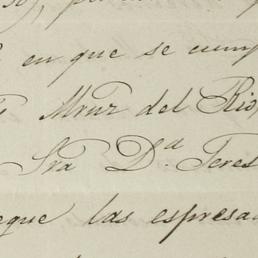 en que se cump
Mruz del Rio,
Sra D.ª Teres
que las espresa